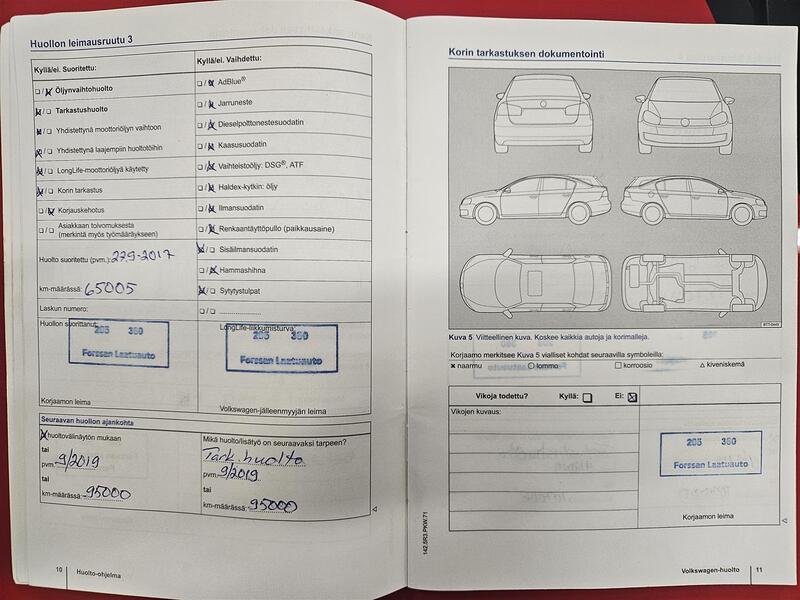 Huollon leimausruutu 3
Kyllä/ei. Suoritettu:
Öljynvaihtohuolto
Tarkastushuolto
Yhdistettynä moottoriöljyn vaihtoon
Yhdistettynä laajempiin huoltotöihin
LongLife-moottoriöljyä käytetty
Korin tarkastus
Korjauskehotus
Asiakkaan toivomuksesta
(merkintä myös työmääräykseen)
Huolto suoritettu (pvm.): 27.9-2017
km-määrässä: 65005
Laskun numero:
Huollon suorittanut:
205 360
Forssan Laatuauto
Korjaamon leima
Kyllä/ei. Vaihdettu:
AdBlue®
Jarruneste
Dieselpolttonestesuodatin
Kaasusuodatin
Vaihteistoöljy: DSG®, ATF
Haldex-kytkin: öljy
Ilmansuodatin
Renkaantäyttöpullo (paikkausaine)
Sisäilmansuodatin
Hammashihna
Sytytystulpat
LongLife-liikkumisturva:
205 360
Forssan Laatuauto
Volkswagen-jälleenmyyjän leima
Seuraavan huollon ajankohta
huoltovälinäytön mukaan
tai
pvm. 9/2019
tai
km-määrässä: 95000
Mikä huolto/lisätyö on seuraavaksi tarpeen?
Tark. huolto
pvm. 9/2019
tai
km-määrässä: 95000
10 Huolto-ohjelma
Korin tarkastuksen dokumentointi
Kuva 5 Viitteellinen kuva. Koskee kaikkia autoja ja korimalleja.
Korjaamo merkitsee Kuva 5 vialliset kohdat seuraavilla symboleilla:
naarmu lommo korroosio kiveniskemä
Vikoja todettu? Kyllä: Ei:
Vikojen kuvaus:
205 360
Forssan Laatuauto
Korjaamon leima
142.5R3.PKW.71
Volkswagen-huolto 11